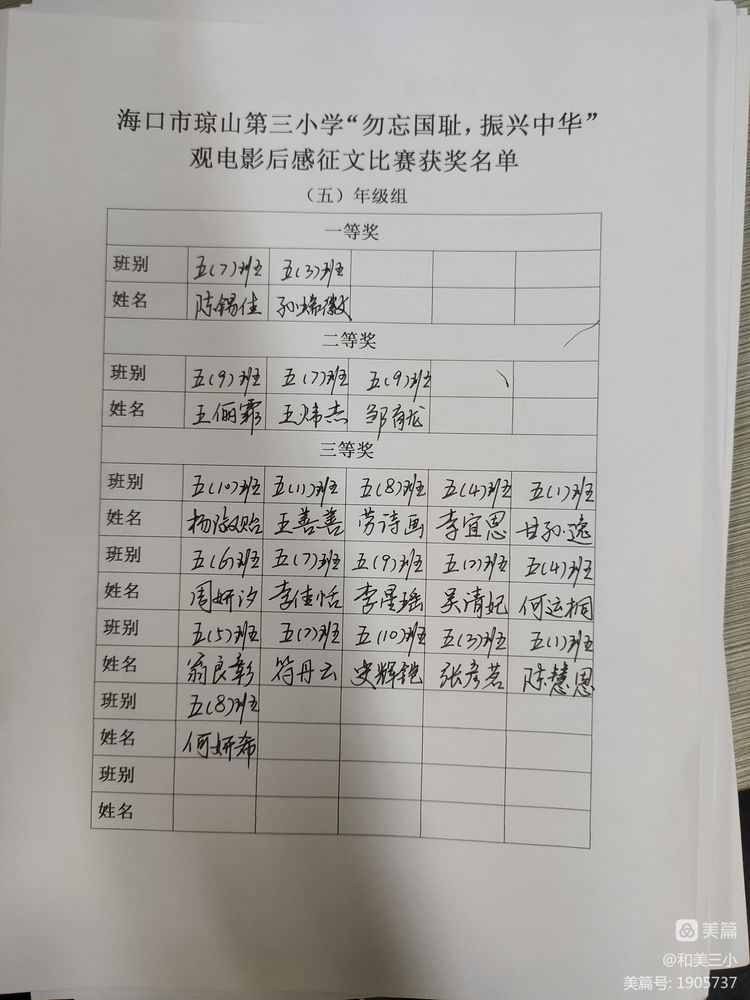 海口市琼山第三小学“勿忘国耻，振兴中华”
观电影后感征文比赛获奖名单
（五）年级组
一等奖
班别 五(7)班 五(3)班
姓名 陈锡佳
二等奖
班别 五(9)班 五(7)班 五(9)班
姓名 王俪霏 王炜杰
三等奖
班别 五(10)班 五(1)班 五(8)班 五(4)班 五(1)班
姓名 王善善 劳诗画 李宜恩 甘孙逸
班别 五(6)班 五(7)班 五(9)班 五(2)班 五(4)班
姓名 周妍汐 李佳恬 李星瑶 吴清妃 何运桐
班别 五(5)班 五(2)班 五(10)班 五(3)班 五(1)班
姓名 翁良彰 符丹云 史辉铠 张彦茗 陈慧恩
班别 五(8)班
姓名 何妍希
班别
姓名
美篇
@和美三小
美篇号: 1905737